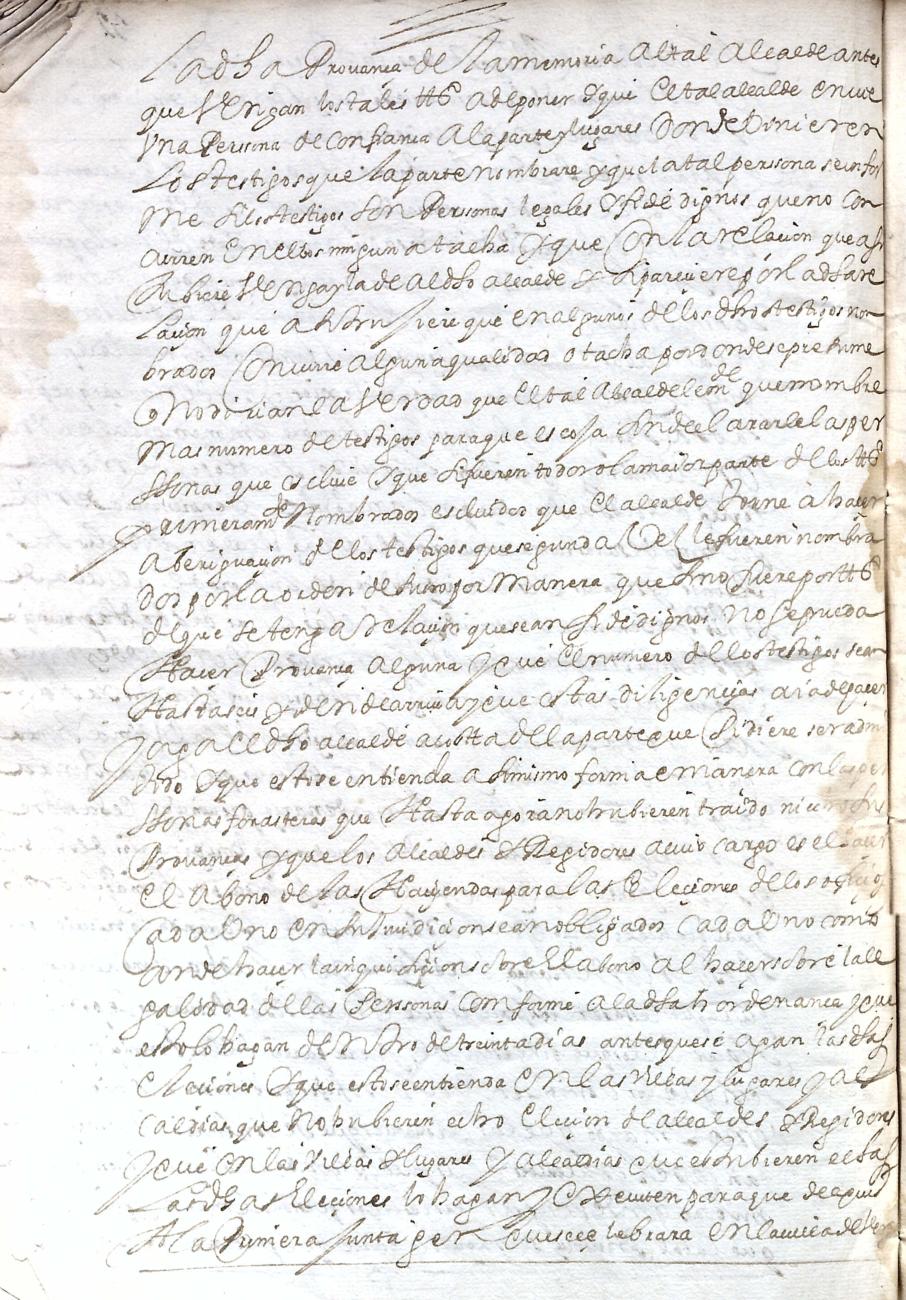 La dha Provanca de la memoria al tal Alcalde antes
que Vengan los tales tgos a deponer y qui el tal alcalde envie
Una Persona de Confianca A la parte y lugares Donde Vinieren
Los testigos que la parte nombrare y que la tal persona se infor
me si los testigos son Personas legales y fidedignos que no con
curren en ellos ningun a tacha y que Con la relacion que asi
hubiere Venga y la de al dho alcalde y si pareciere por la dha re
lacion que a hubiere que en algunos de los dhos testigos nom
brados Concurre alguna qualidad o tacha por donde se presume
q No diran la Verdad que el tal Alcalde le mde que nombre
Mas numero de testigos para que escoja sin declararle las per
sonas que escluie y que si fueren todos o la maior parte de los tgos
primeramte Nombrados escluidos que el alcalde torne à hacer
aberiguacion de los testigos que segunda Vez le fueren nombra
dos por la orden de suso por manera que si no fuere por tgos
de que se tenga relacion que sean fidedignos No se pueda
Hacer Provanca alguna y que el numero de los testigos sean
Hasta seis y dende arriua y que estas diligencias aia de hacer
y aga el dho alcalde a costa de la parte que Pidiere ser admi
tido y que esto se entienda asimismo forma e manera con las per
sonas forasteras que Hasta agora no hubieren traido ni echo sus
Provancas y que los Alcaldes y Regidores a cuio cargo es el hacer
el Abono de las Haciendas para las Elecciones de los oficios
Cada Uno en su Juridicion sean obligados Cada Uno como
an de hacer la inquisicion sobre El abono a la hacer sobre la le
galidad de las Personas conforme a la dha hordenanca y que
esto lo hagan dentro de treinta dias antes que se agan las dhas
elecciones y que esto se entienda en las Villas y lugares y al
caldias que No hubieren echo Elecion de alcaldes y Regidores
y que en las Villas y lugares y alcaldias que es hubieren echas
Las dhas Elecciones lo hagan y executen para que despues
A la Primera Junta gerl que se celebrara en la villa de